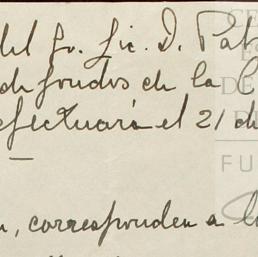 del Sr. Lic. D. Pab
de fondos de la C
efectuará el 21 d
, corresponden a l